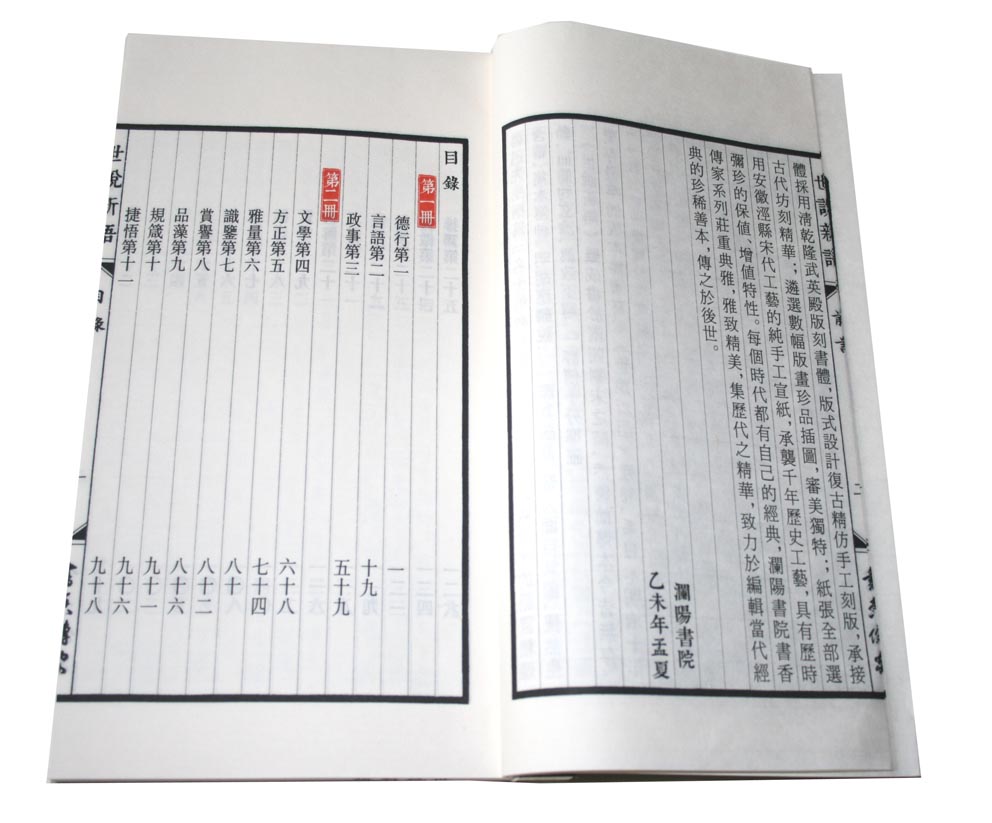 世說新語
前言
二
體採用清乾隆武英殿版刻書體，版式設計復古精仿手工刻版，承接
古代坊刻精華；遴選數幅版畫珍品插圖，審美獨特；紙張全部選
用安徽涇縣宋代工藝的純手工宣紙，承襲千年歷史工藝，具有歷時
彌珍的保值、增值特性。每個時代都有自己的經典，瀾陽書院書香
傳家系列莊重典雅，雅致精美，集歷代之精華，致力於編輯當代經
典的珍稀善本，傳之於後世。
瀾陽書院
乙未年孟夏
目錄
第一冊
德行第一 一
言語第二 十九
政事第三 五十九
第二冊
文學第四 六十八
方正第五 七十四
雅量第六 八十
識鑒第七 八十二
賞譽第八 八十六
品藻第九 九十一
規箴第十 九十六
捷悟第十一 九十八
世說新語
目錄
一